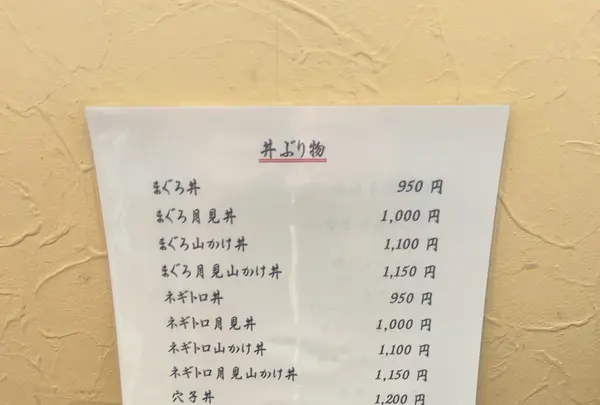 丼ぶり物
まぐろ丼 950 円
まぐろ月見丼 1,000 円
まぐろ山かけ丼 1,100 円
まぐろ月見山かけ丼 1,150 円
ネギトロ丼 950 円
ネギトロ月見丼 1,000 円
ネギトロ山かけ丼 1,100 円
ネギトロ月見山かけ丼 1,150 円
穴子丼 1,200 円